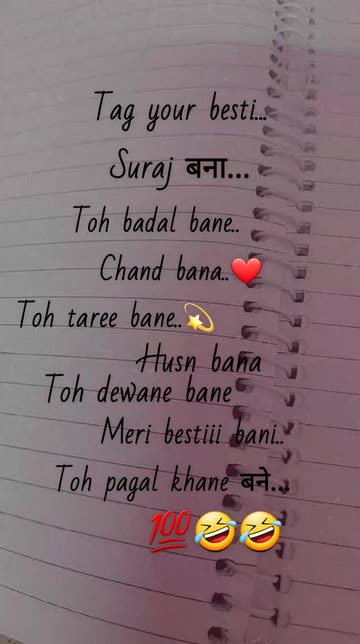 Tag your besti...
Suraj बना...
Toh badal bane..
Chand bana..❤️
Toh taree bane..💫
Husn bana
Toh dewane bane
Meri bestiii bani..
Toh pagal khane बने...
💯🤣🤣